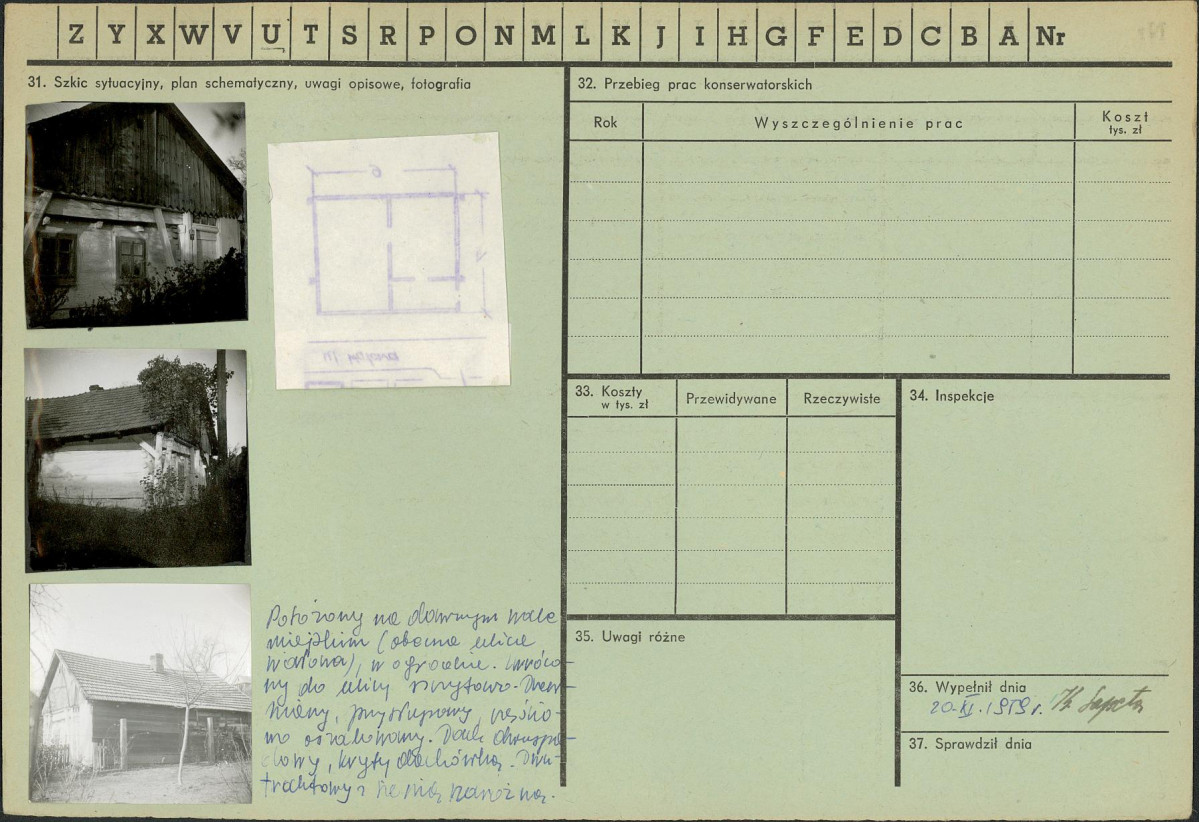 Z Y X W V U T S R P O N M L K J I H G F E D C B A Nr
31. Szkic sytuacyjny, plan schematyczny, uwagi opisowe, fotografia
6
Położony na dawnym wale
miejskim (obecna ulica
Wałowa), w ogrodzie. Zwróco-
ny do ulicy szczytowo. Drew-
niany, przysłupowy, częścio-
wo oszalowany. Dach dwuspa-
dowy, kryty dachówką. Dwu-
traktowy z sienią narożną.
32. Przebieg prac konserwatorskich
Rok
Wyszczególnienie prac
Koszt
tys. zł
33. Koszty
w tys. zł
Przewidywane
Rzeczywiste
34. Inspekcje
35. Uwagi różne
36. Wypełnił dnia
20.XI.1959 r.
37. Sprawdził dnia